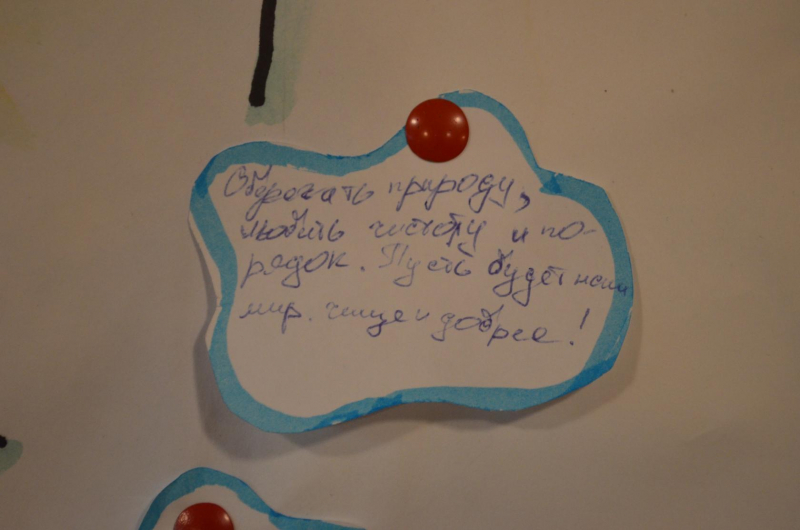 Оберегать природу,
любить чистоту и по-
рядок. Пусть будет наш
мир. чище и добрее!